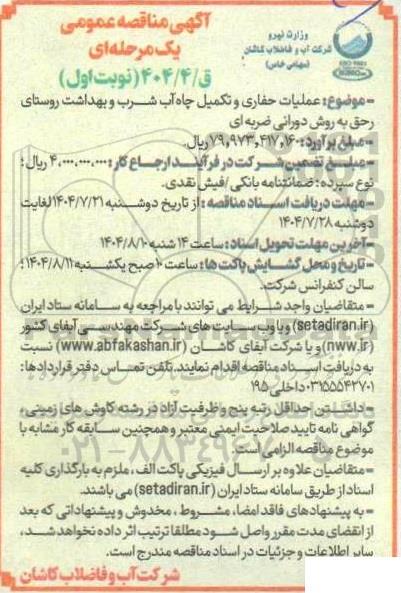 آگهی مناقصه عمومی
یک مرحله‌ای
ق/۴۰۴/۴ (نوبت اول)
وزارت نیرو
شرکت آب و فاضلاب کاشان
(سهامی خاص)
- موضوع: عملیات حفاری و تکمیل چاه آب شرب و بهداشت روستای
رحق به روش دورانی ضربه ای
- مبلغ برآورد: ۷۹,۹۷۳,۴۱۷,۰۶۰ ریال.
- مبلغ تضمین شرکت در فرآیند ارجاع کار: ۴,۰۰۰,۰۰۰,۰۰۰ ریال؛
نوع سپرده: ضمانتنامه بانکی/فیش نقدی.
- مهلت دریافت اسناد مناقصه: از تاریخ دوشنبه ۱۴۰۴/۷/۲۱ لغایت
دوشنبه ۱۴۰۴/۷/۲۸
- آخرین مهلت تحویل اسناد: ساعت ۱۴ شنبه ۱۴۰۴/۸/۱۰
- تاریخ و محل گشایش پاکت ها: ساعت ۱۰ صبح یکشنبه ۱۴۰۴/۸/۱۱؛
سالن کنفرانس شرکت.
- متقاضیان واجد شرایط می توانند با مراجعه به سامانه ستاد ایران
(setadiran.ir) و یا وب سایت های شرکت مهندسی آبفای کشور
(nww.ir) و یا شرکت آبفای کاشان (www.abfakashan.ir) نسبت
به دریافت اسناد مناقصه اقدام نمایند. تلفن تماس دفتر قراردادها:
۰۳۱۵۵۵۴۲۷۰۱ داخلی ۱۹۵
- داشتن حداقل رتبه پنج و ظرفیت آزاد در رشته کاوش های زمینی،
گواهی نامه تایید صلاحیت ایمنی معتبر و همچنین سابقه کار مشابه با
موضوع مناقصه الزامی است.
- متقاضیان علاوه بر ارسال فیزیکی پاکت الف، ملزم به بارگذاری کلیه
اسناد از طریق سامانه ستاد ایران (setadiran.ir) می باشند.
- به پیشنهادهای فاقد امضا، مشروط، مخدوش و پیشنهاداتی که بعد
از انقضای مدت مقرر واصل شود مطلقا ترتیب اثر داده نخواهد شد،
سایر اطلاعات و جزئیات در اسناد مناقصه مندرج است.
شرکت آب و فاضلاب کاشان
۰۲۱-۸۸۳۴۹۶۷